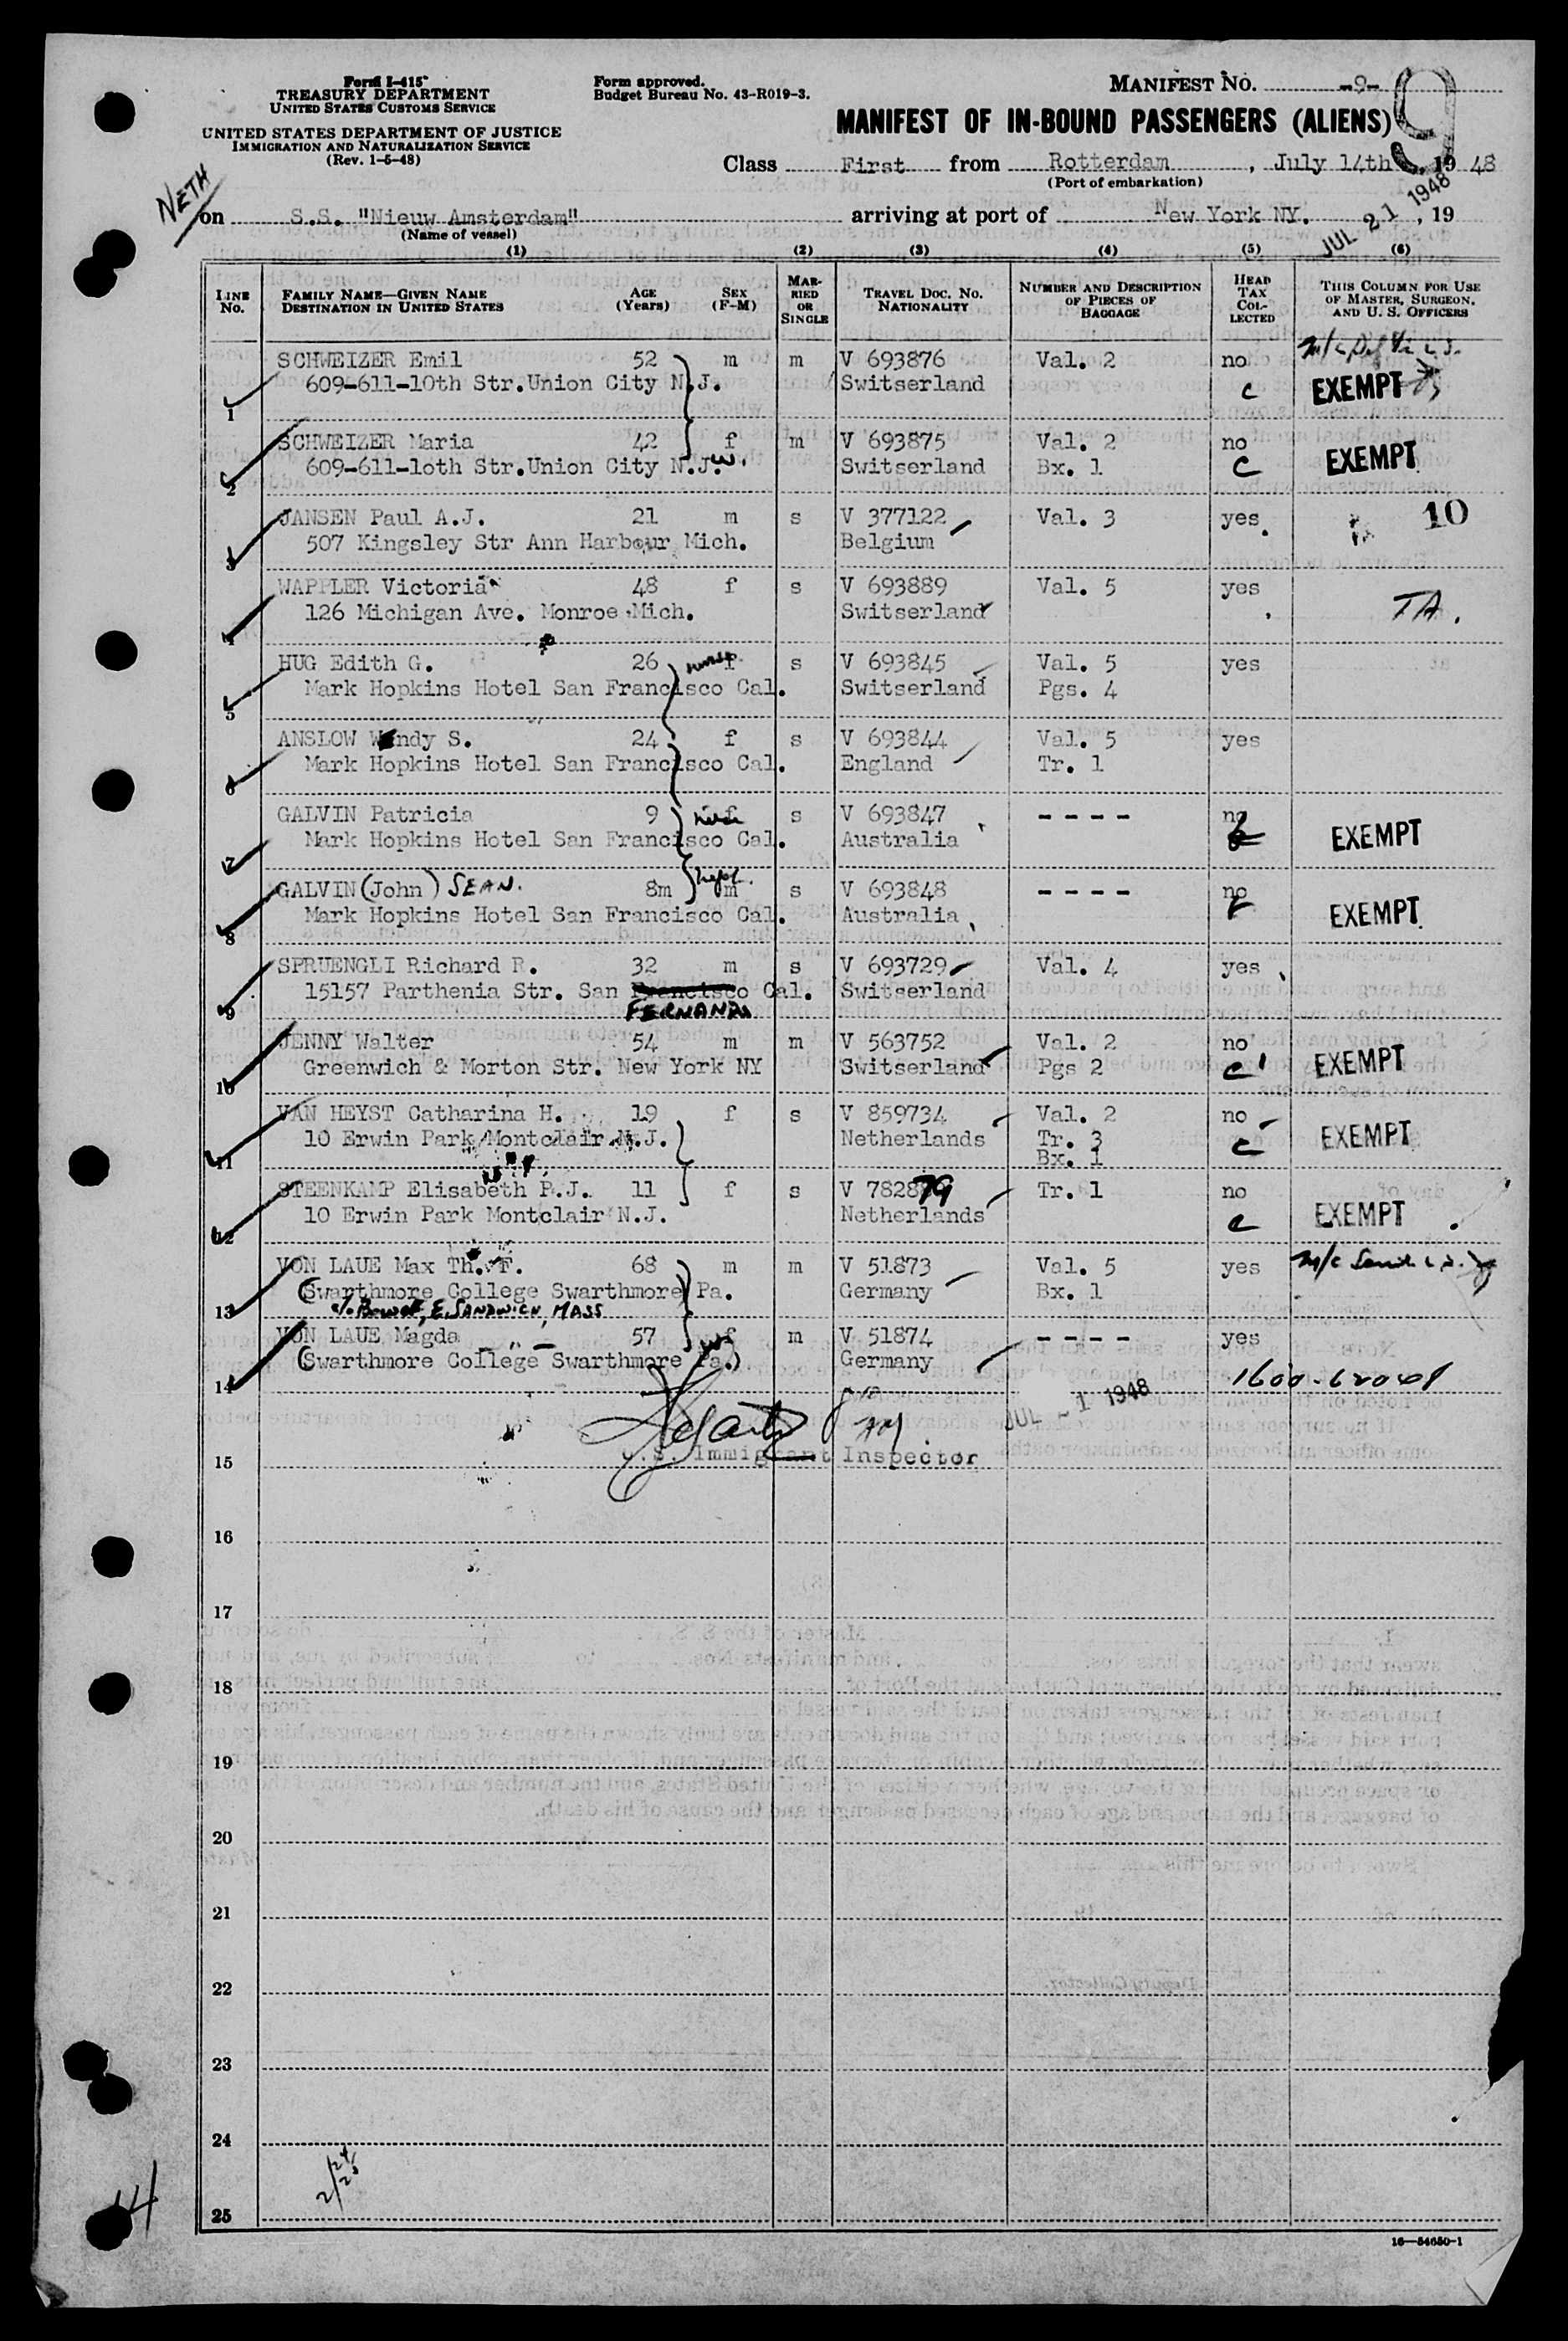 Form I-415
TREASURY DEPARTMENT
UNITED STATES CUSTOMS SERVICE
UNITED STATES DEPARTMENT OF JUSTICE
IMMIGRATION AND NATURALIZATION SERVICE
(Rev. 1-5-48)
Form approved.
Budget Bureau No. 43-R019-3.
MANIFEST NO. -9-
9
MANIFEST OF IN-BOUND PASSENGERS (ALIENS)
Class First from Rotterdam, July 14th, 1948
(Port of embarkation)
NETH
on S.S. "Nieuw Amsterdam" arriving at port of New York NY. JUL 21 1948, 19
(Name of vessel)
(1) (2) (3) (4) (5) (6)
LINE No. FAMILY NAME—GIVEN NAME DESTINATION IN UNITED STATES AGE (Years) SEX (F-M) MARRIED OR SINGLE TRAVEL DOC. NO. NATIONALITY NUMBER AND DESCRIPTION OF PIECES OF BAGGAGE HEAD TAX COLLECTED THIS COLUMN FOR USE OF MASTER, SURGEON, AND U. S. OFFICERS
SCHWEIZER Emil 52 m m V 693876 Val. 2 no
1 609-611-10th Str.Union City N.J. Switserland c EXEMPT
SCHWEIZER Maria 42 f m V 693875 Val. 2 no
2 609-611-1oth Str.Union City N.J. w. Switserland Bx. 1 C EXEMPT
JANSEN Paul A.J. 21 m s V 377122 Val. 3 yes 10
3 507 Kingsley Str Ann Harbour Mich. Belgium
WAPPLER Victoria 48 f s V 693889 Val. 5 yes
4 126 Michigan Ave. Monroe Mich. Switserland TA.
HUG Edith G. 26 f s V 693845 Val. 5 yes
5 Mark Hopkins Hotel San Francisco Cal. Switserland Pgs. 4
ANSLOW Wendy S. 24 f s V 693844 Val. 5 yes
6 Mark Hopkins Hotel San Francisco Cal. England Tr. 1
GALVIN Patricia 9 f s V 693847 ---- no
7 Mark Hopkins Hotel San Francisco Cal. Australia EXEMPT
GALVIN (John) SEAN. 8m m s V 693848 ---- no
8 Mark Hopkins Hotel San Francisco Cal. Australia EXEMPT
SPRUENGLI Richard R. 32 m s V 693729 Val. 4 yes
9 15157 Parthenia Str. San Francisco Cal. Switserland
FERNANDO
JENNY Walter 54 m m V 563752 Val. 2 no
10 Greenwich & Morton Str. New York NY Switserland Pgs 2 c EXEMPT
VAN HEYST Catharina H. 19 f s V 859734 Val. 2 no
11 10 Erwin Park Montclair N.J. Netherlands Tr. 3 c EXEMPT
Bx. 1
STEENKAMP Elisabeth P.J. 11 f s V 782879 Tr. 1 no
12 10 Erwin Park Montclair N.J. Netherlands c EXEMPT
VON LAUE Max Th. F. 68 m m V 51873 Val. 5 yes
(Swarthmore College Swarthmore) Pa. Germany Bx. 1
13 E. SANDWICH, MASS
VON LAUE Magda 57 f m V 51874 ---- yes
14 (Swarthmore College Swarthmore Pa.) Germany
JUL 21 1948
U.S. Immigrant Inspector
15
16
17
18
19
20
21
22
23
24
2/24/25
25
14
16—54650-1